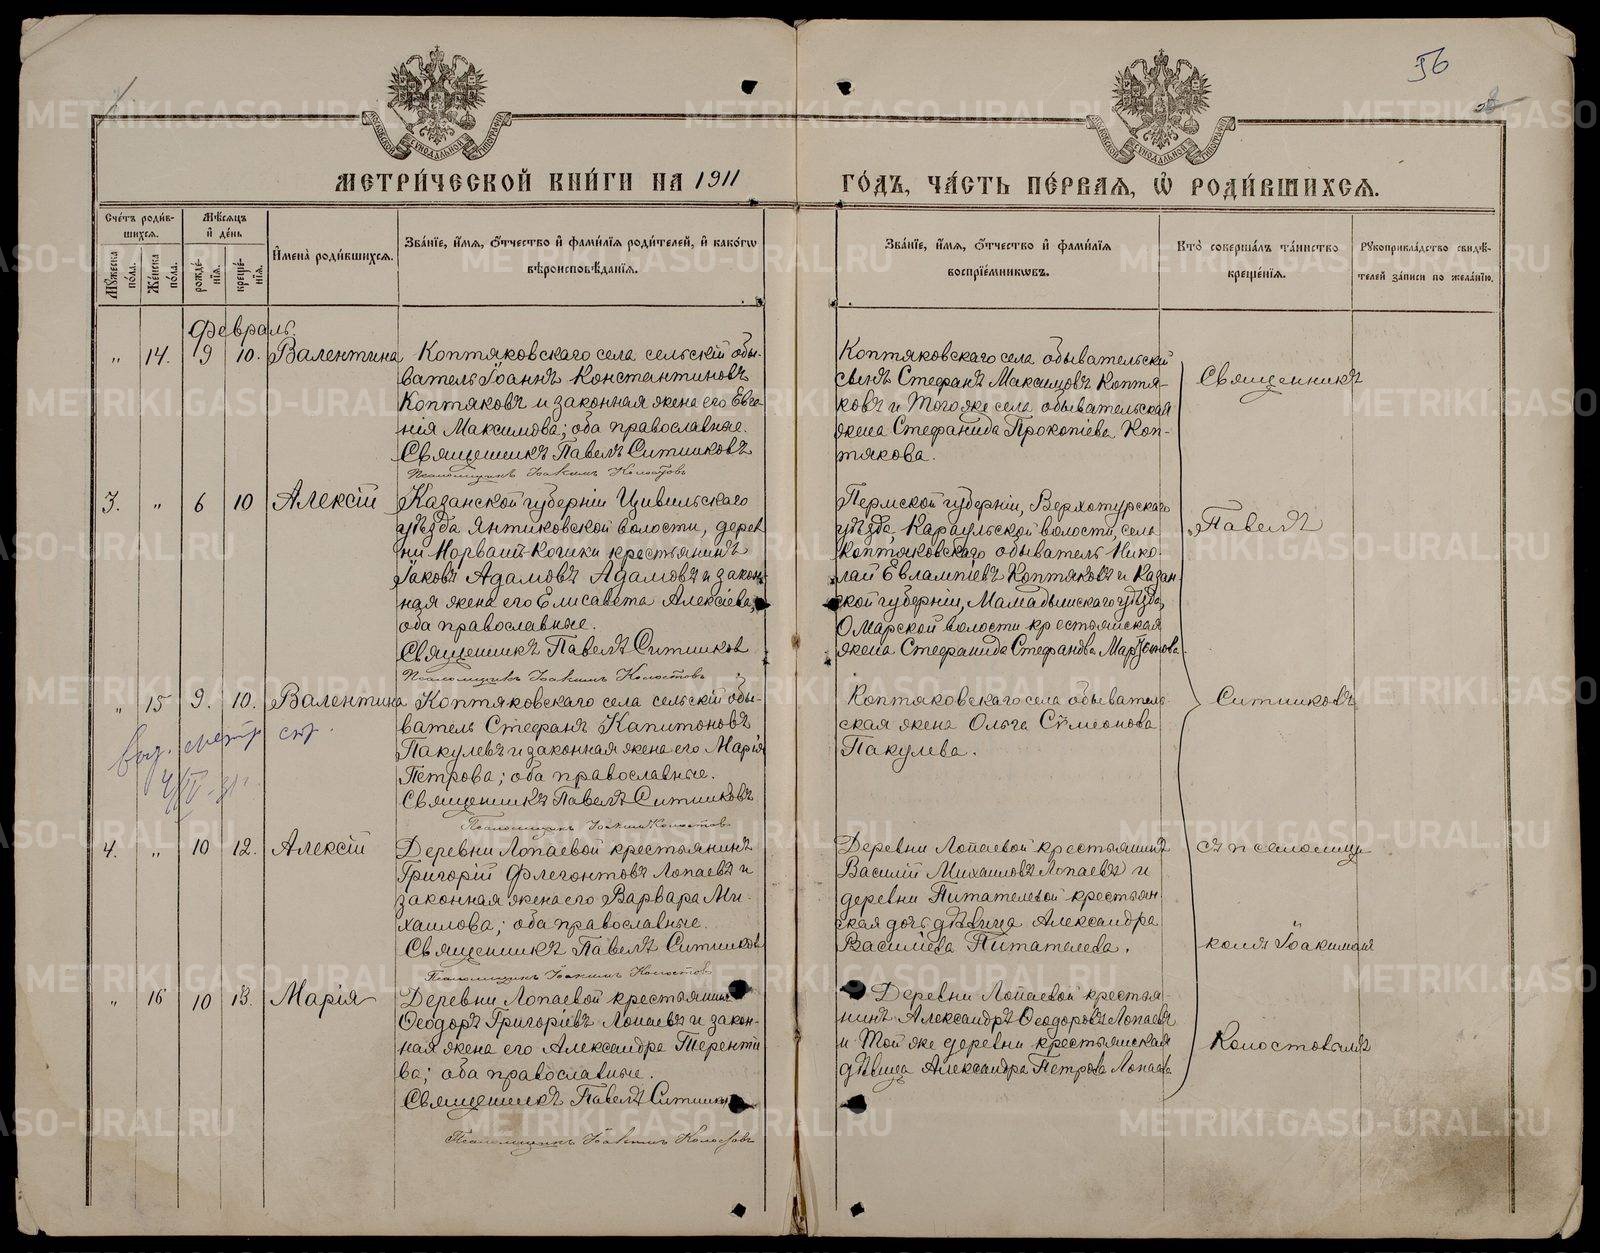 56
МЕТРИ́ЧЕСКОЙ КНИ́ГИ НА 1911 ГО́ДЪ, ЧА́СТЬ ПЕ́РВАЯ, Ѡ҆ РОДИ́ВШИХСЯ.
Сче́тъ роди́вшихся.
Му́жеска по́ла.
Же́нска по́ла.
Мѣ́сяцъ и҆ де́нь
рожде́нїя.
креще́нїя.
И҆мена̀ роди́вшихся.
Зва́нїе, и҆́мя, ѻ҆́тчество и҆ фами́лїя роди́телей, и҆ како́гѡ
вѣроисповѣ́данїя.
Зва́нїе, и҆́мя, ѻ҆́тчество и҆ фами́лїя
воспрїе́мникѡвъ.
Кто̀ соверша́лъ та́инство
креще́нїя.
Рꙋкоприкла́дство свидѣ́-
телей за́писи по жела́нїю.
Февраль.
" 14. 9 10. Валентина
Коптяковскаго села сельскій обы-
ватель Іоаннъ Константиновъ
Коптяковъ и законная жена его Евге-
нія Максимова; оба православные.
Священникъ Павелъ Ситниковъ
Псаломщикъ Іоакимъ Колостовъ
Коптяковскаго села обывательскій
сынъ Стефанъ Максимовъ Коптя-
ковъ и того же села обывательская
жена Стефанида Прокопіева Коп-
тякова.
Священникъ
3. " 6 10 Алексій
Казанской губерніи Цивильскаго
уѣзда Янтиковской волости, дерев
ни Норваш-Кошки крестьянинъ
Іаковъ Адамовъ Адамовъ и закон-
ная жена его Елисавета Алексіева;
оба православные.
Священникъ Павелъ Ситников
Псаломщикъ Іоакимъ Колостовъ
Пермской губерніи, Верхотурскаго
уѣзда, Караульской волости, села
Коптяковскаго обыватель Нико-
лай Евлампіевъ Коптяковъ и Казан-
ской губерніи, Мамадышскаго уѣзда,
Омарской волости крестьянская
жена Стефанида Стефанова
Павелъ
" 15 9. 10. Валентина
Коптяковскаго села сельскій обы-
ватель Стефанъ Капитоновъ
Пакулевъ и законная жена его Марія
Петрова; оба православные.
Священникъ Павелъ Ситниковъ
Псаломщикъ Іоакимъ Колостов
Коптяковскаго села обыватель
ская жена Ольга Сѵмеонова
Пакулева.
Ситниковъ
выд. метр
4/IV-31.
4. " 10 12. Алексій
Деревни Лопаевой крестьянинъ
Григорій Флегонтовъ Лопаевъ и
законная жена его Варвара Ми-
хаилова; оба православные.
Священникъ Павелъ Ситников
Псаломщикъ Іоакимъ Колостов
Деревни Лопаевой крестьянинъ
Василій Михаиловъ Лопаевъ и
деревни Питателевой крестьян
ская дочь дѣвица Александра
Василіева Питателева.
съ псаломщи
комъ Іоакимомъ
" 16 10 13. Марія
Деревни Лопаевой крестьянинъ
Ѳеодоръ Григоріевъ Лопаевъ и закон-
ная жена его Александра Терентіе
ва; оба православные.
Священникъ Павелъ Ситник
Псаломщикъ Іоакимъ Колостовъ
Деревни Лопаевой крестья-
нинъ Александръ Ѳеодоровъ Лопаевъ
и той же деревни крестьянская
дѣвица Александра Петрова Лопаева
Колостовымъ